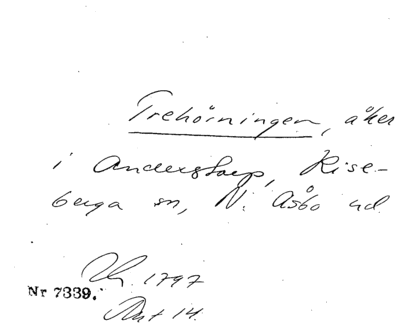 Trehörningen, åker
i Anderstorp, Rise-
berga sn, N. Åsbo hd
Uh. 1797
Nr 7339.
Akt 14.